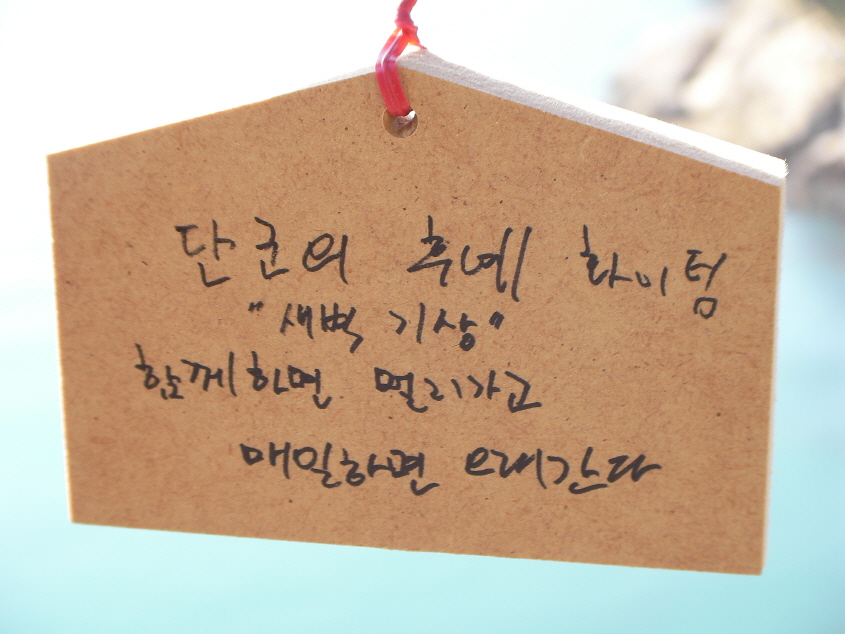 단군의 후예 화이팅
"새벽 기상"
함께하면 멀리가고
매일하면 오래간다